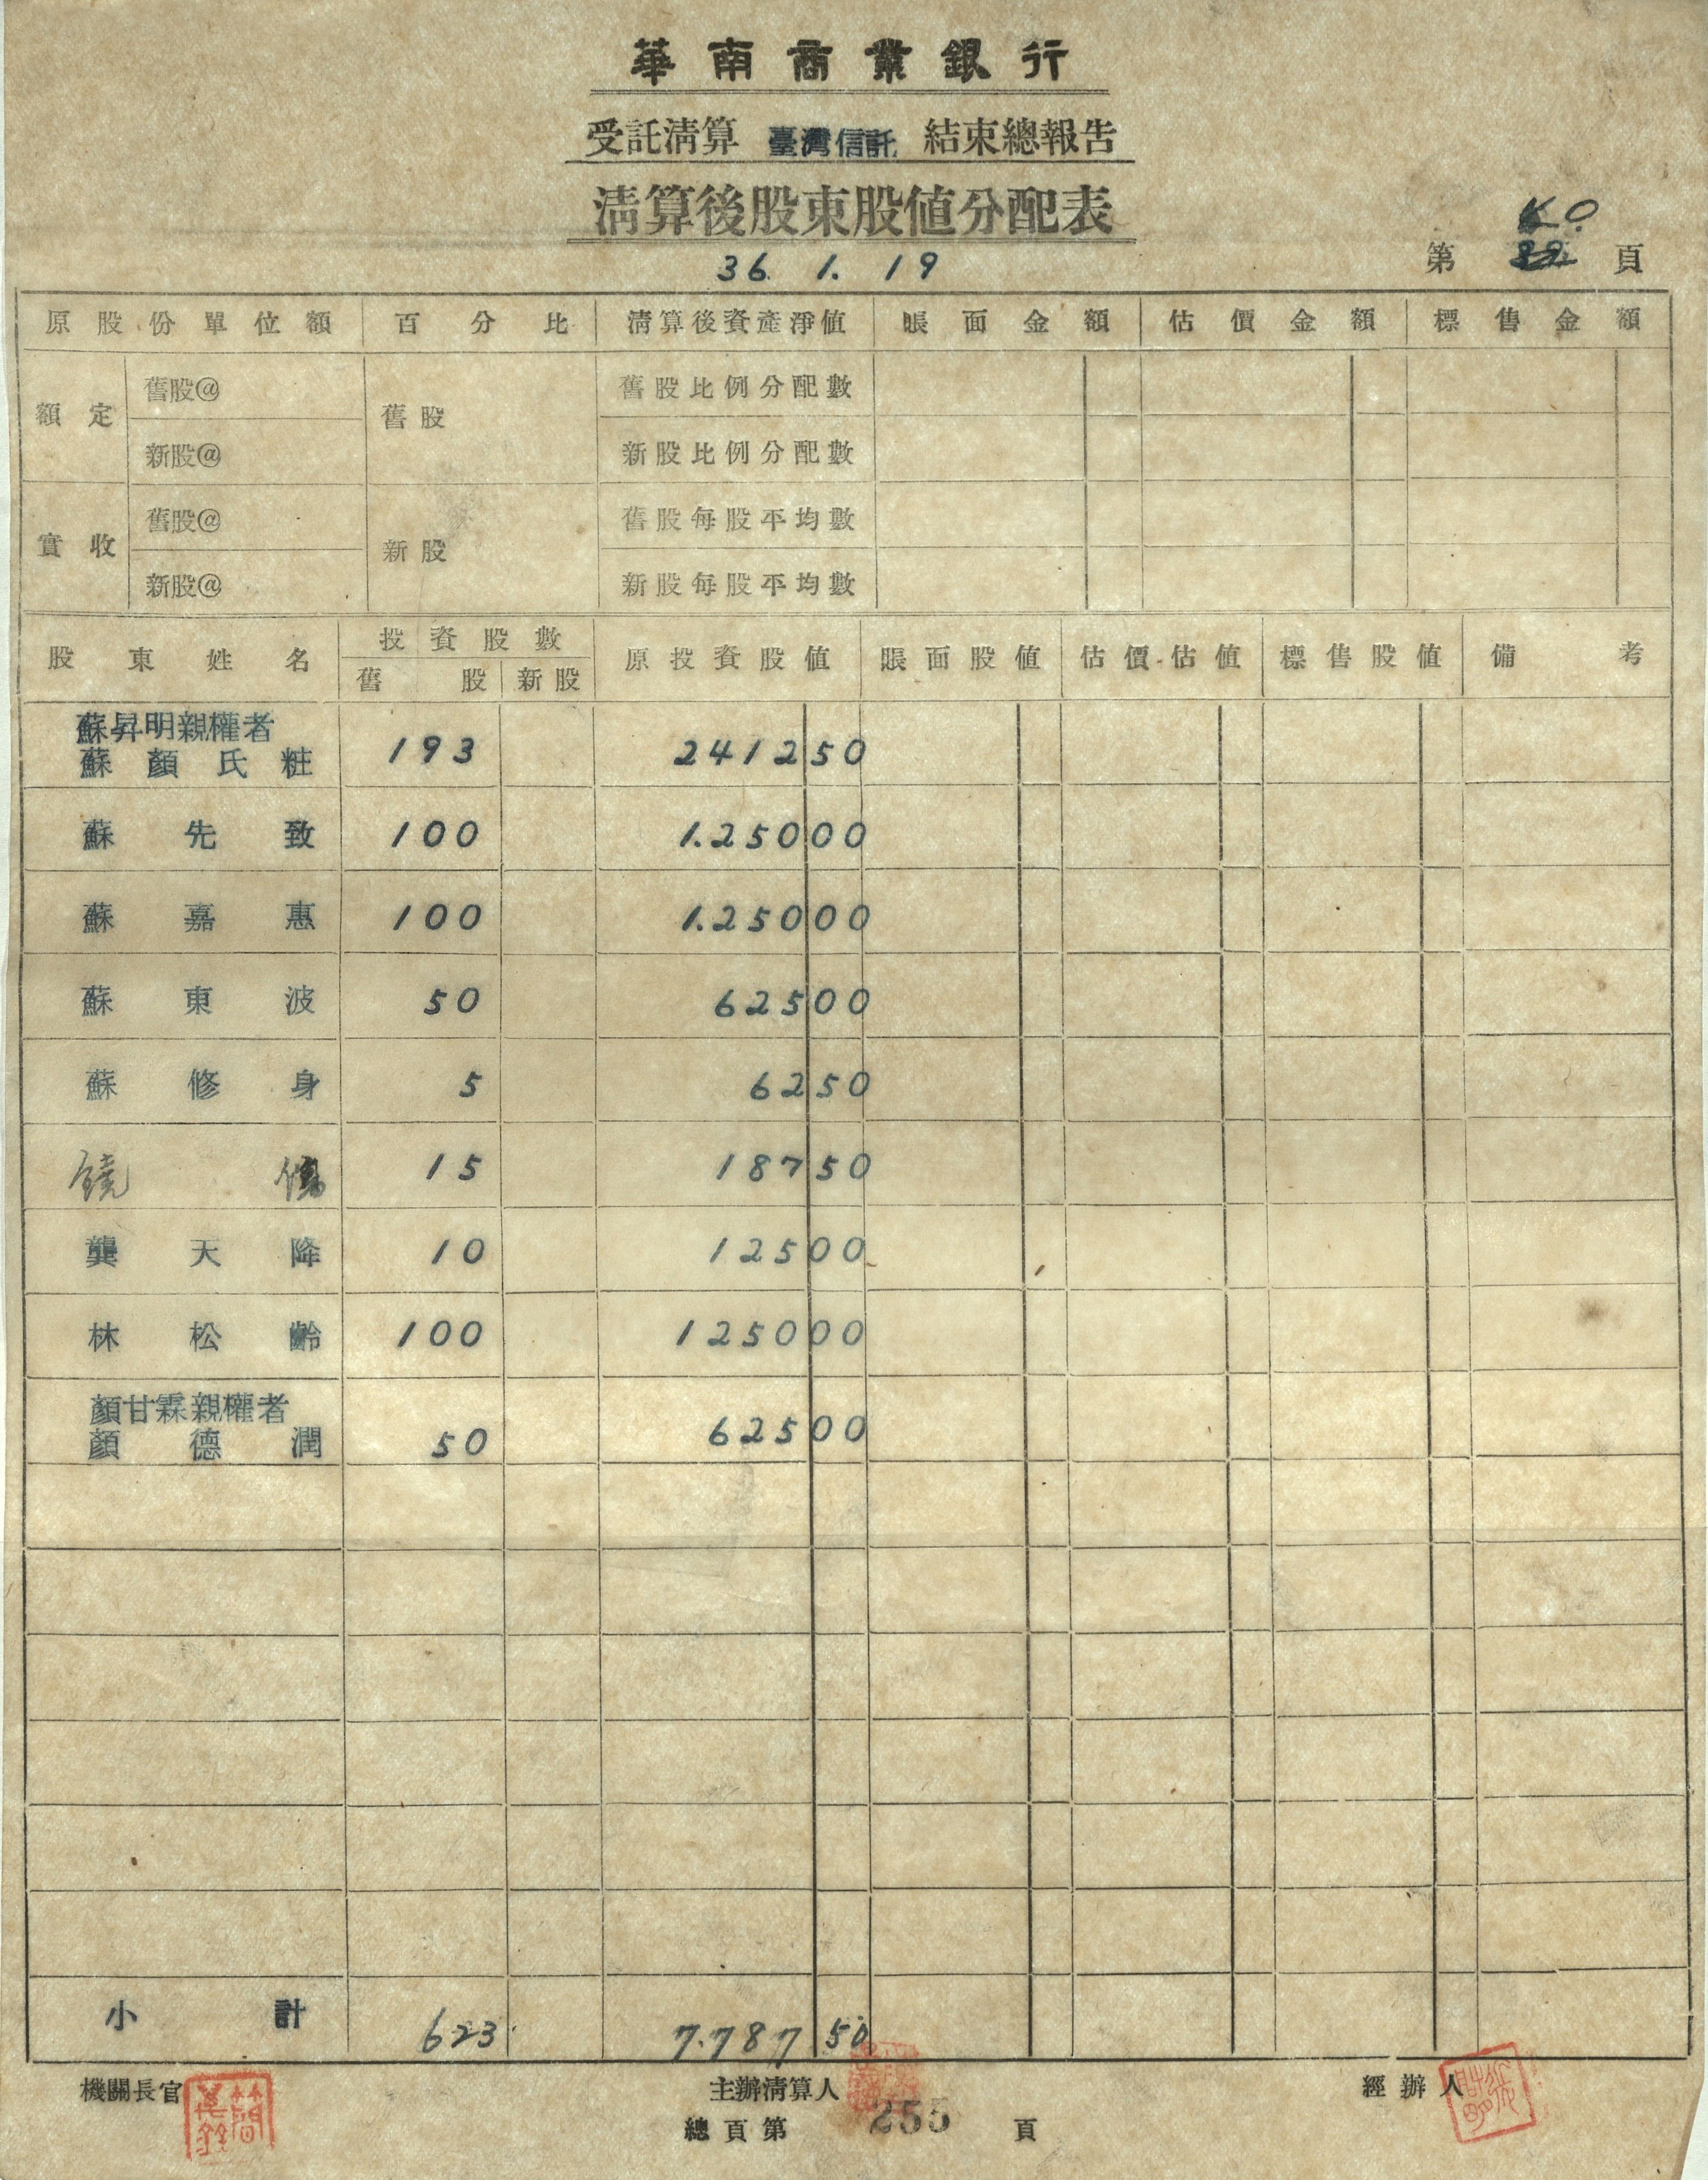 華南商業銀行
受託清算 臺灣信託 結束總報告
清算後股東股値分配表
36. 1. 19
K.O.
第 頁
原股份單位額 百分比 清算後資產淨値 賬面金額 估價金額 標售金額
額定 舊股@ 舊股 舊股比例分配數
新股@ 新股比例分配數
實收 舊股@ 新股 舊股每股平均數
新股@ 新股每股平均數
股東姓名 投資股數 原投資股値 賬面股値 估價估値 標售股値 備考
舊股 新股
蘇昇明親權者
蘇顏氏粧 193 2412 50
蘇先致 100 1.250 00
蘇嘉惠 100 1.250 00
蘇東波 50 625 00
蘇修身 5 62 50
15 187 50
龔天降 10 125 00
林松齡 100 1250 00
顏甘霖親權者
顏德潤 50 625 00
小計 623 7.787 50
機關長官 主辦清算人 經辦人
總頁第 255 頁